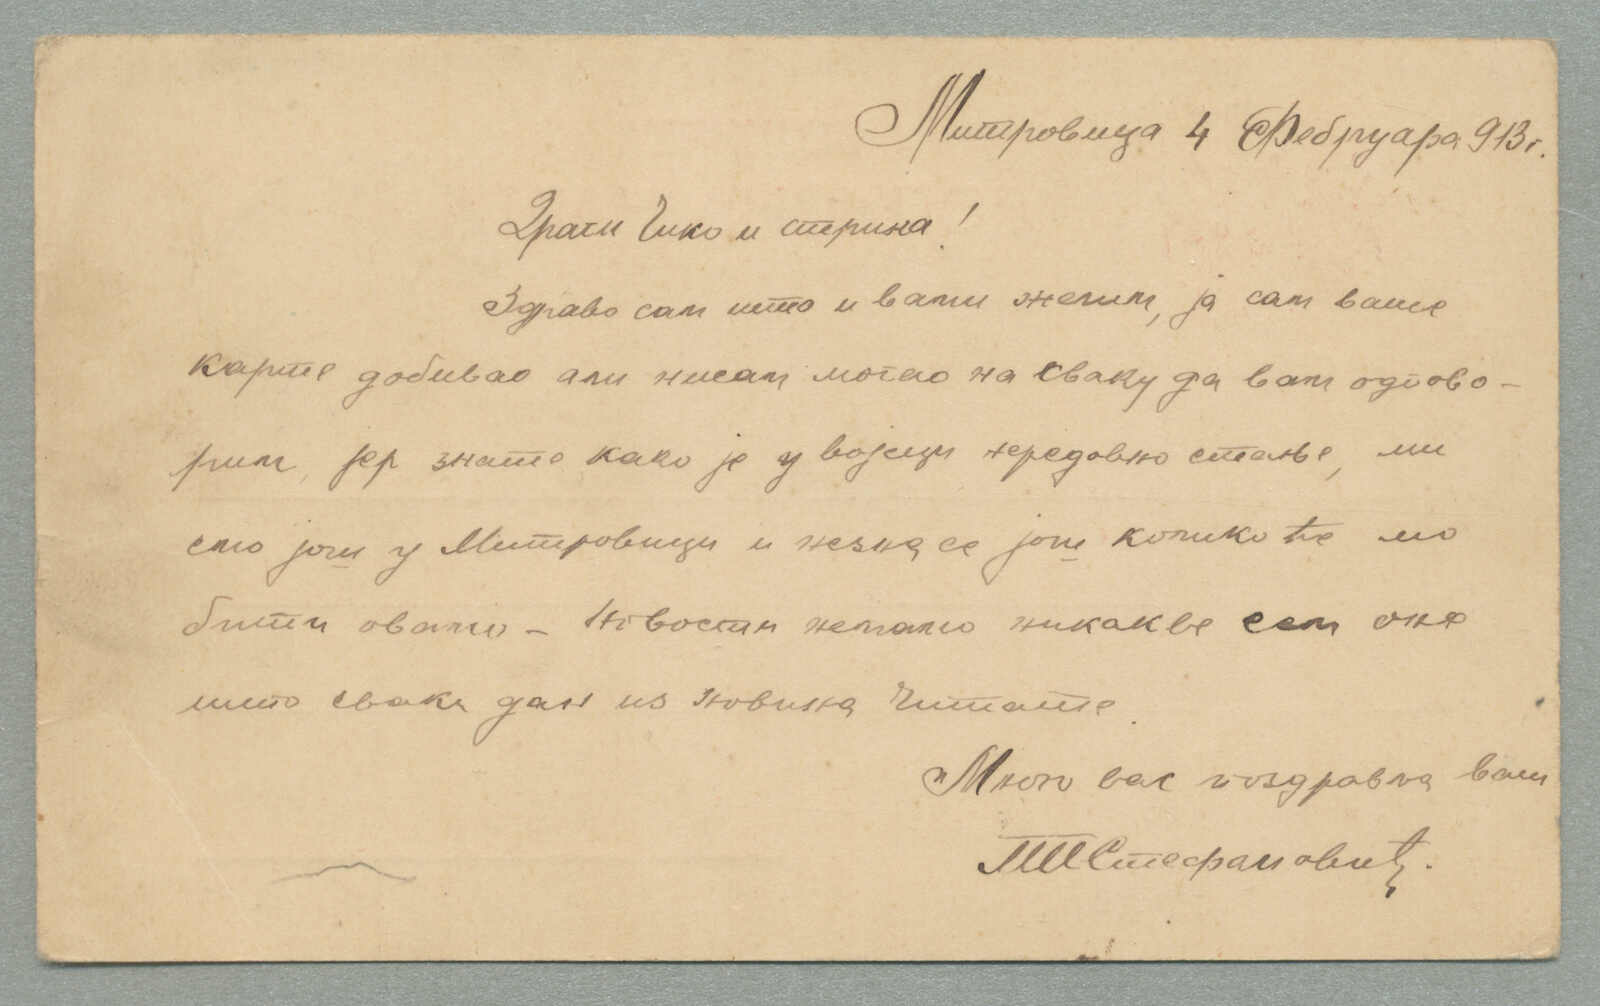 Митровица 4 Фебруара 913 г.
Драги Чико и стрина!
Здраво сам што и вами желим, ја сам ваше
карте добивао али нисам могао на сваку да вам одгово-
рим, јер знате како је у војсци нередовно стање, ми
смо још у Митровици и незна се још колико ће мо
бити овамо – Новости немамо никакве сем оне
што сваки дан из новина читате.
Много вас поздравља ваш
Стефановић.